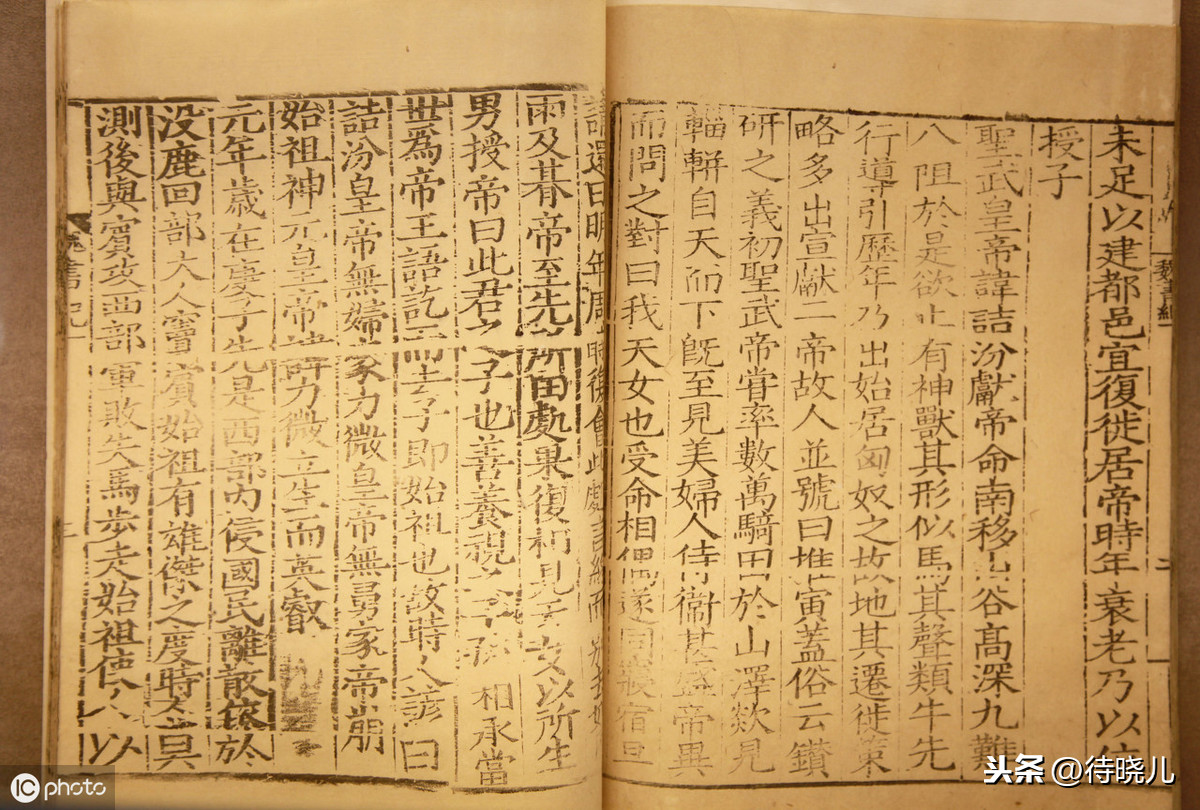 未足以建都邑宜復徙居帝時年衰老乃以位
授子
聖武皇帝諱詰汾獻帝命南移山谷高深九難
八阻於是欲止有神獸其形似馬其聲類牛先
行導引歷年乃出始居匈奴之故地其遷徙策
略多出宣獻二帝故人並號曰推寅蓋俗云鑽
研之義初聖武帝嘗率數萬騎田於山澤欻見
輜軿自天而下既至見美婦人侍衛甚盛帝異
而問之對曰我天女也受命相偶遂同寢宿旦
請還曰明年周時復會此處言終而別去如
雨及朞帝至先所田處果復相見天女以所生
男授帝曰此君之子也善養視之子孫相承當
世為帝王語訖而去子即始祖也故時人諺曰
詰汾皇帝無婦家力微皇帝無舅家帝崩
始祖神元皇帝諱力微立生而英叡
元年歲在庚子先是西部內侵國民離散依於
没鹿回部大人竇賓始祖有雄傑之度時人莫
測後與賓攻西部軍敗失馬步走始祖使人以
魏書紀一
二
魏書紀一
頭条 @待晓儿
IC photo